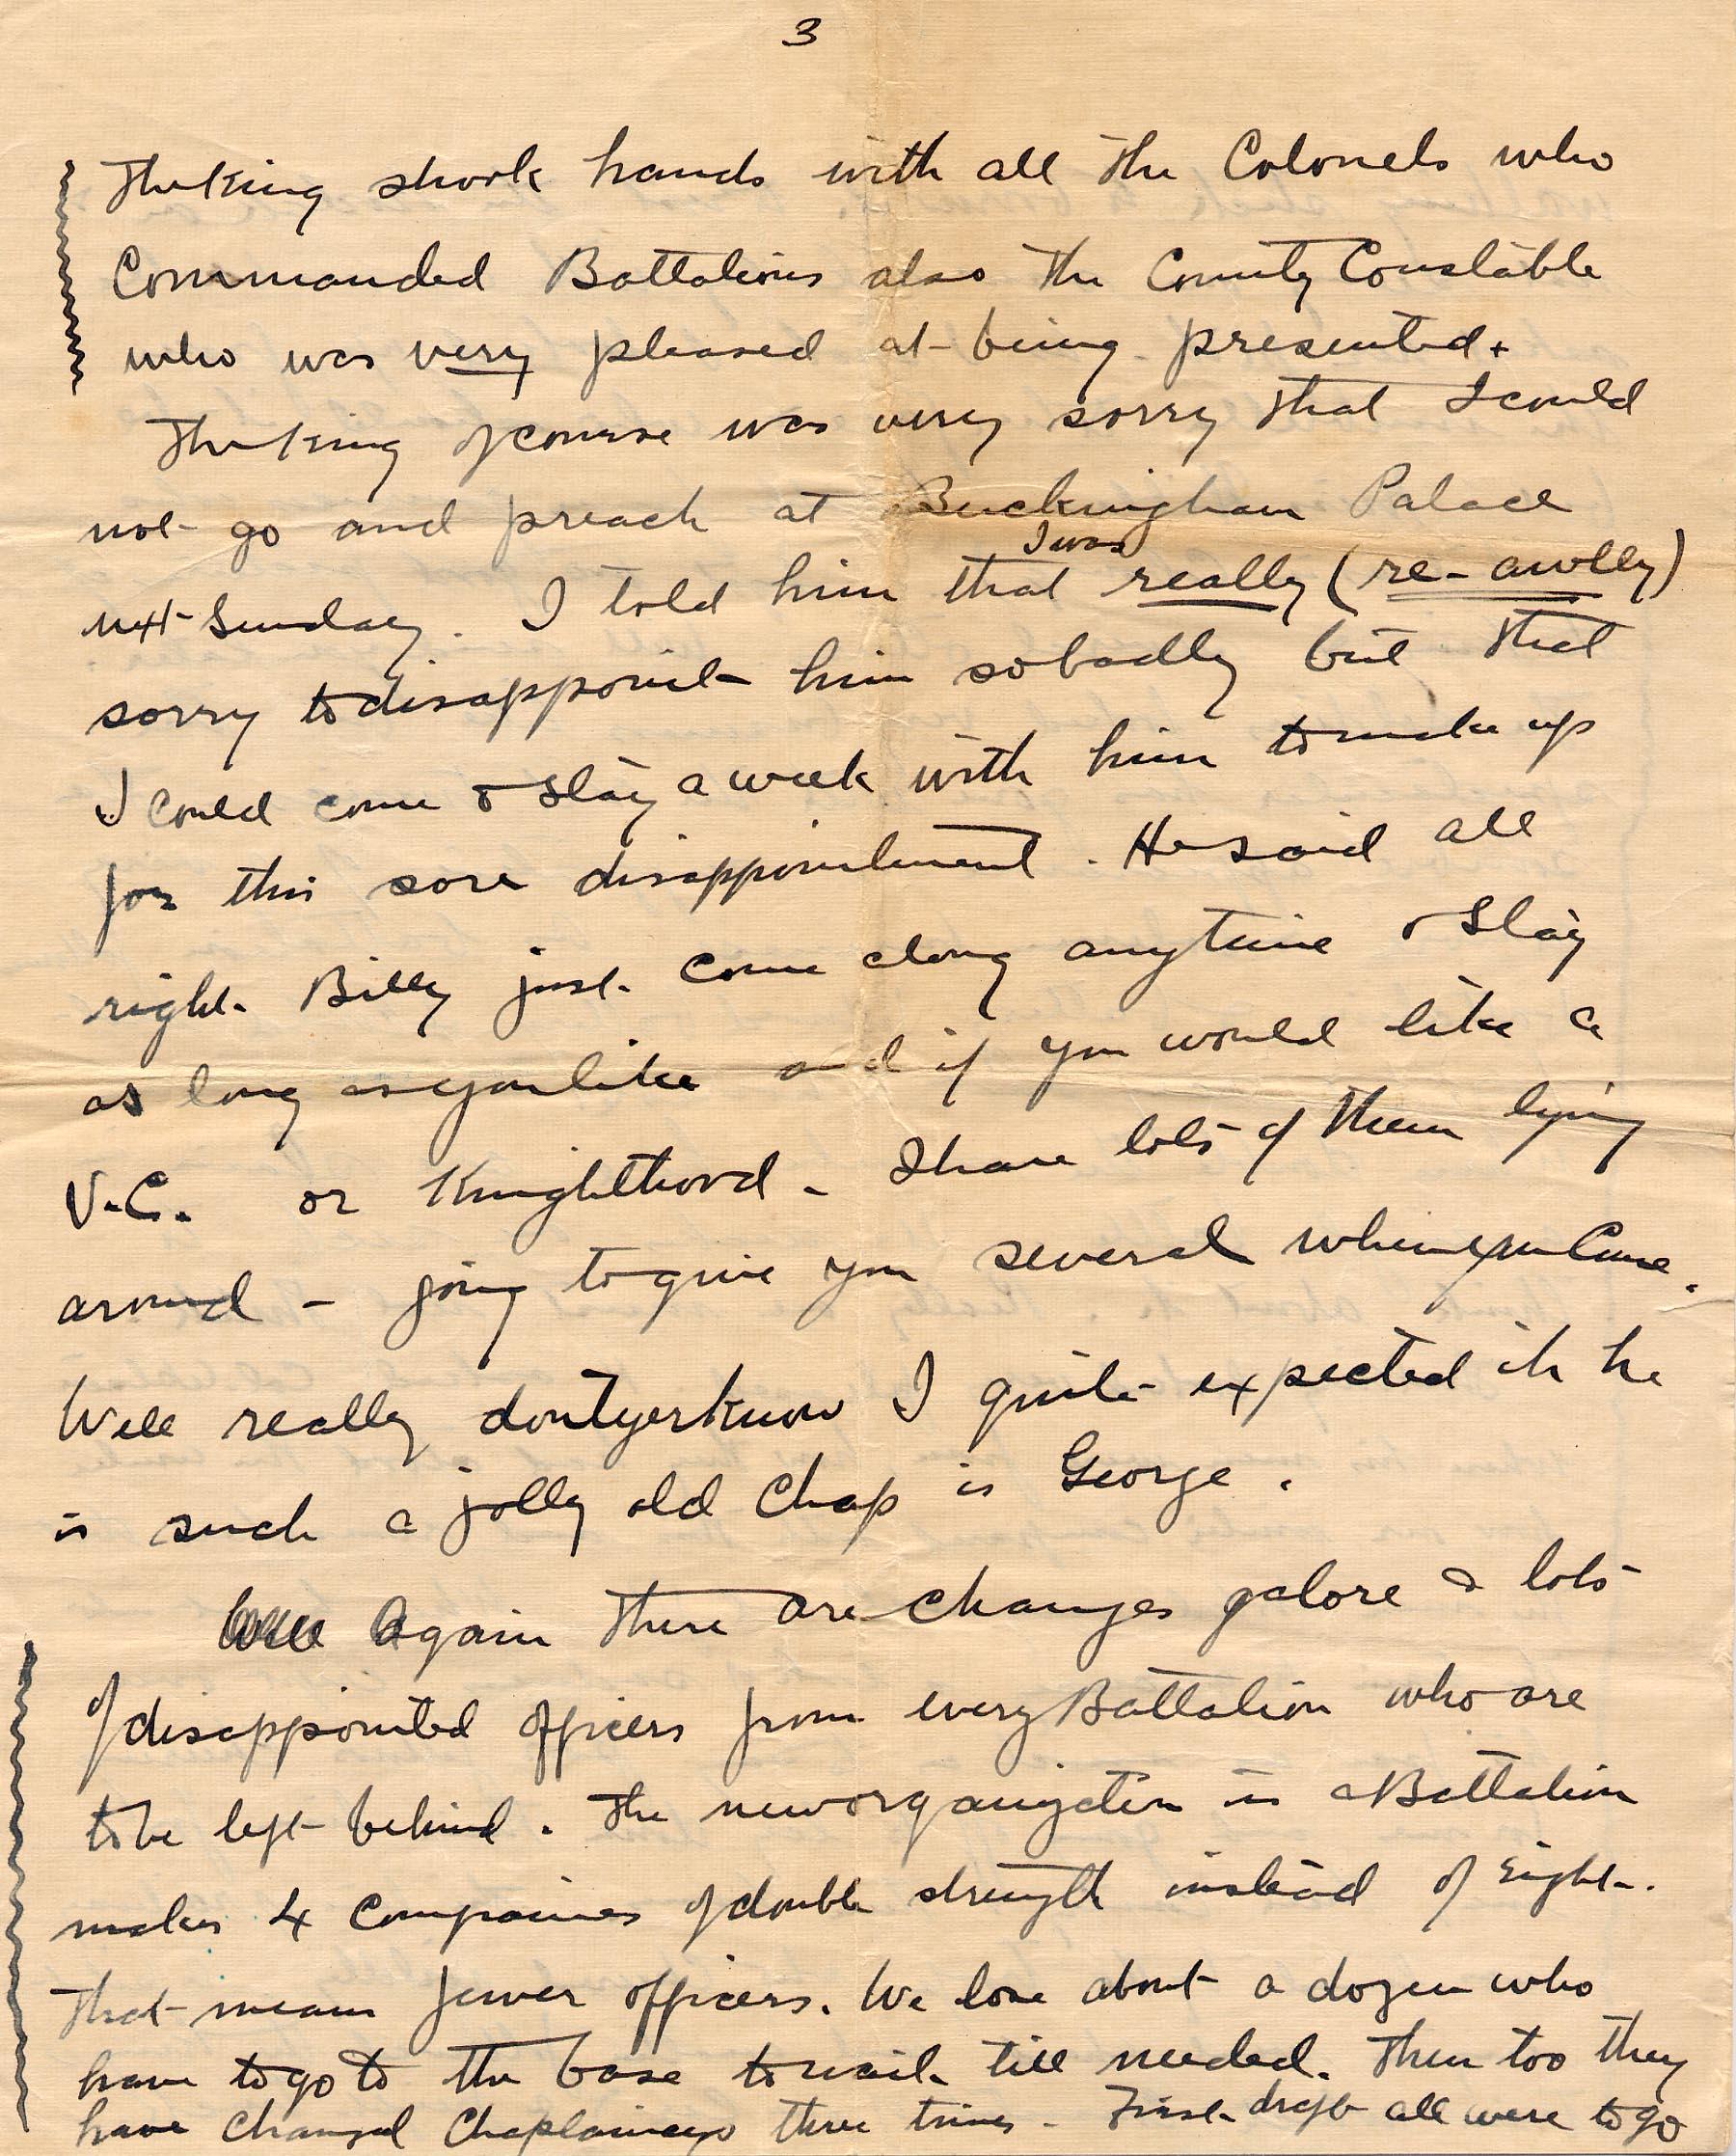 3
The King shook hands with all the Colonels who
Commanded Battalions also the County Constable
who was very pleased at being presented.
The King of course was very sorry that I could
not go and preach at Buckingham Palace
I was
next Sunday. I told him that really (re-awlly)
sorry to disappoint him so badly but that
I could come & stay a week with him to make up
for this sore disappointment. He said all
right Billy just come along anytime & stay
as long as you like and if you would like a
V.C. or Knighthood - I have lots of them lying
around - going to give you several when you come.
Well really dontyerknow I quite expected it he
is such a jolly old chap is George.
Again there are changes galore & lots
of disappointed officers from every Battalion who are
to be left behind. The new organization in a Battalion
makes 4 Companies of double strength instead of eight.
That means fewer officers. We lose about a dozen who
have to go to the base to wait till needed. Then too they
have changed three times - First draft all were to go